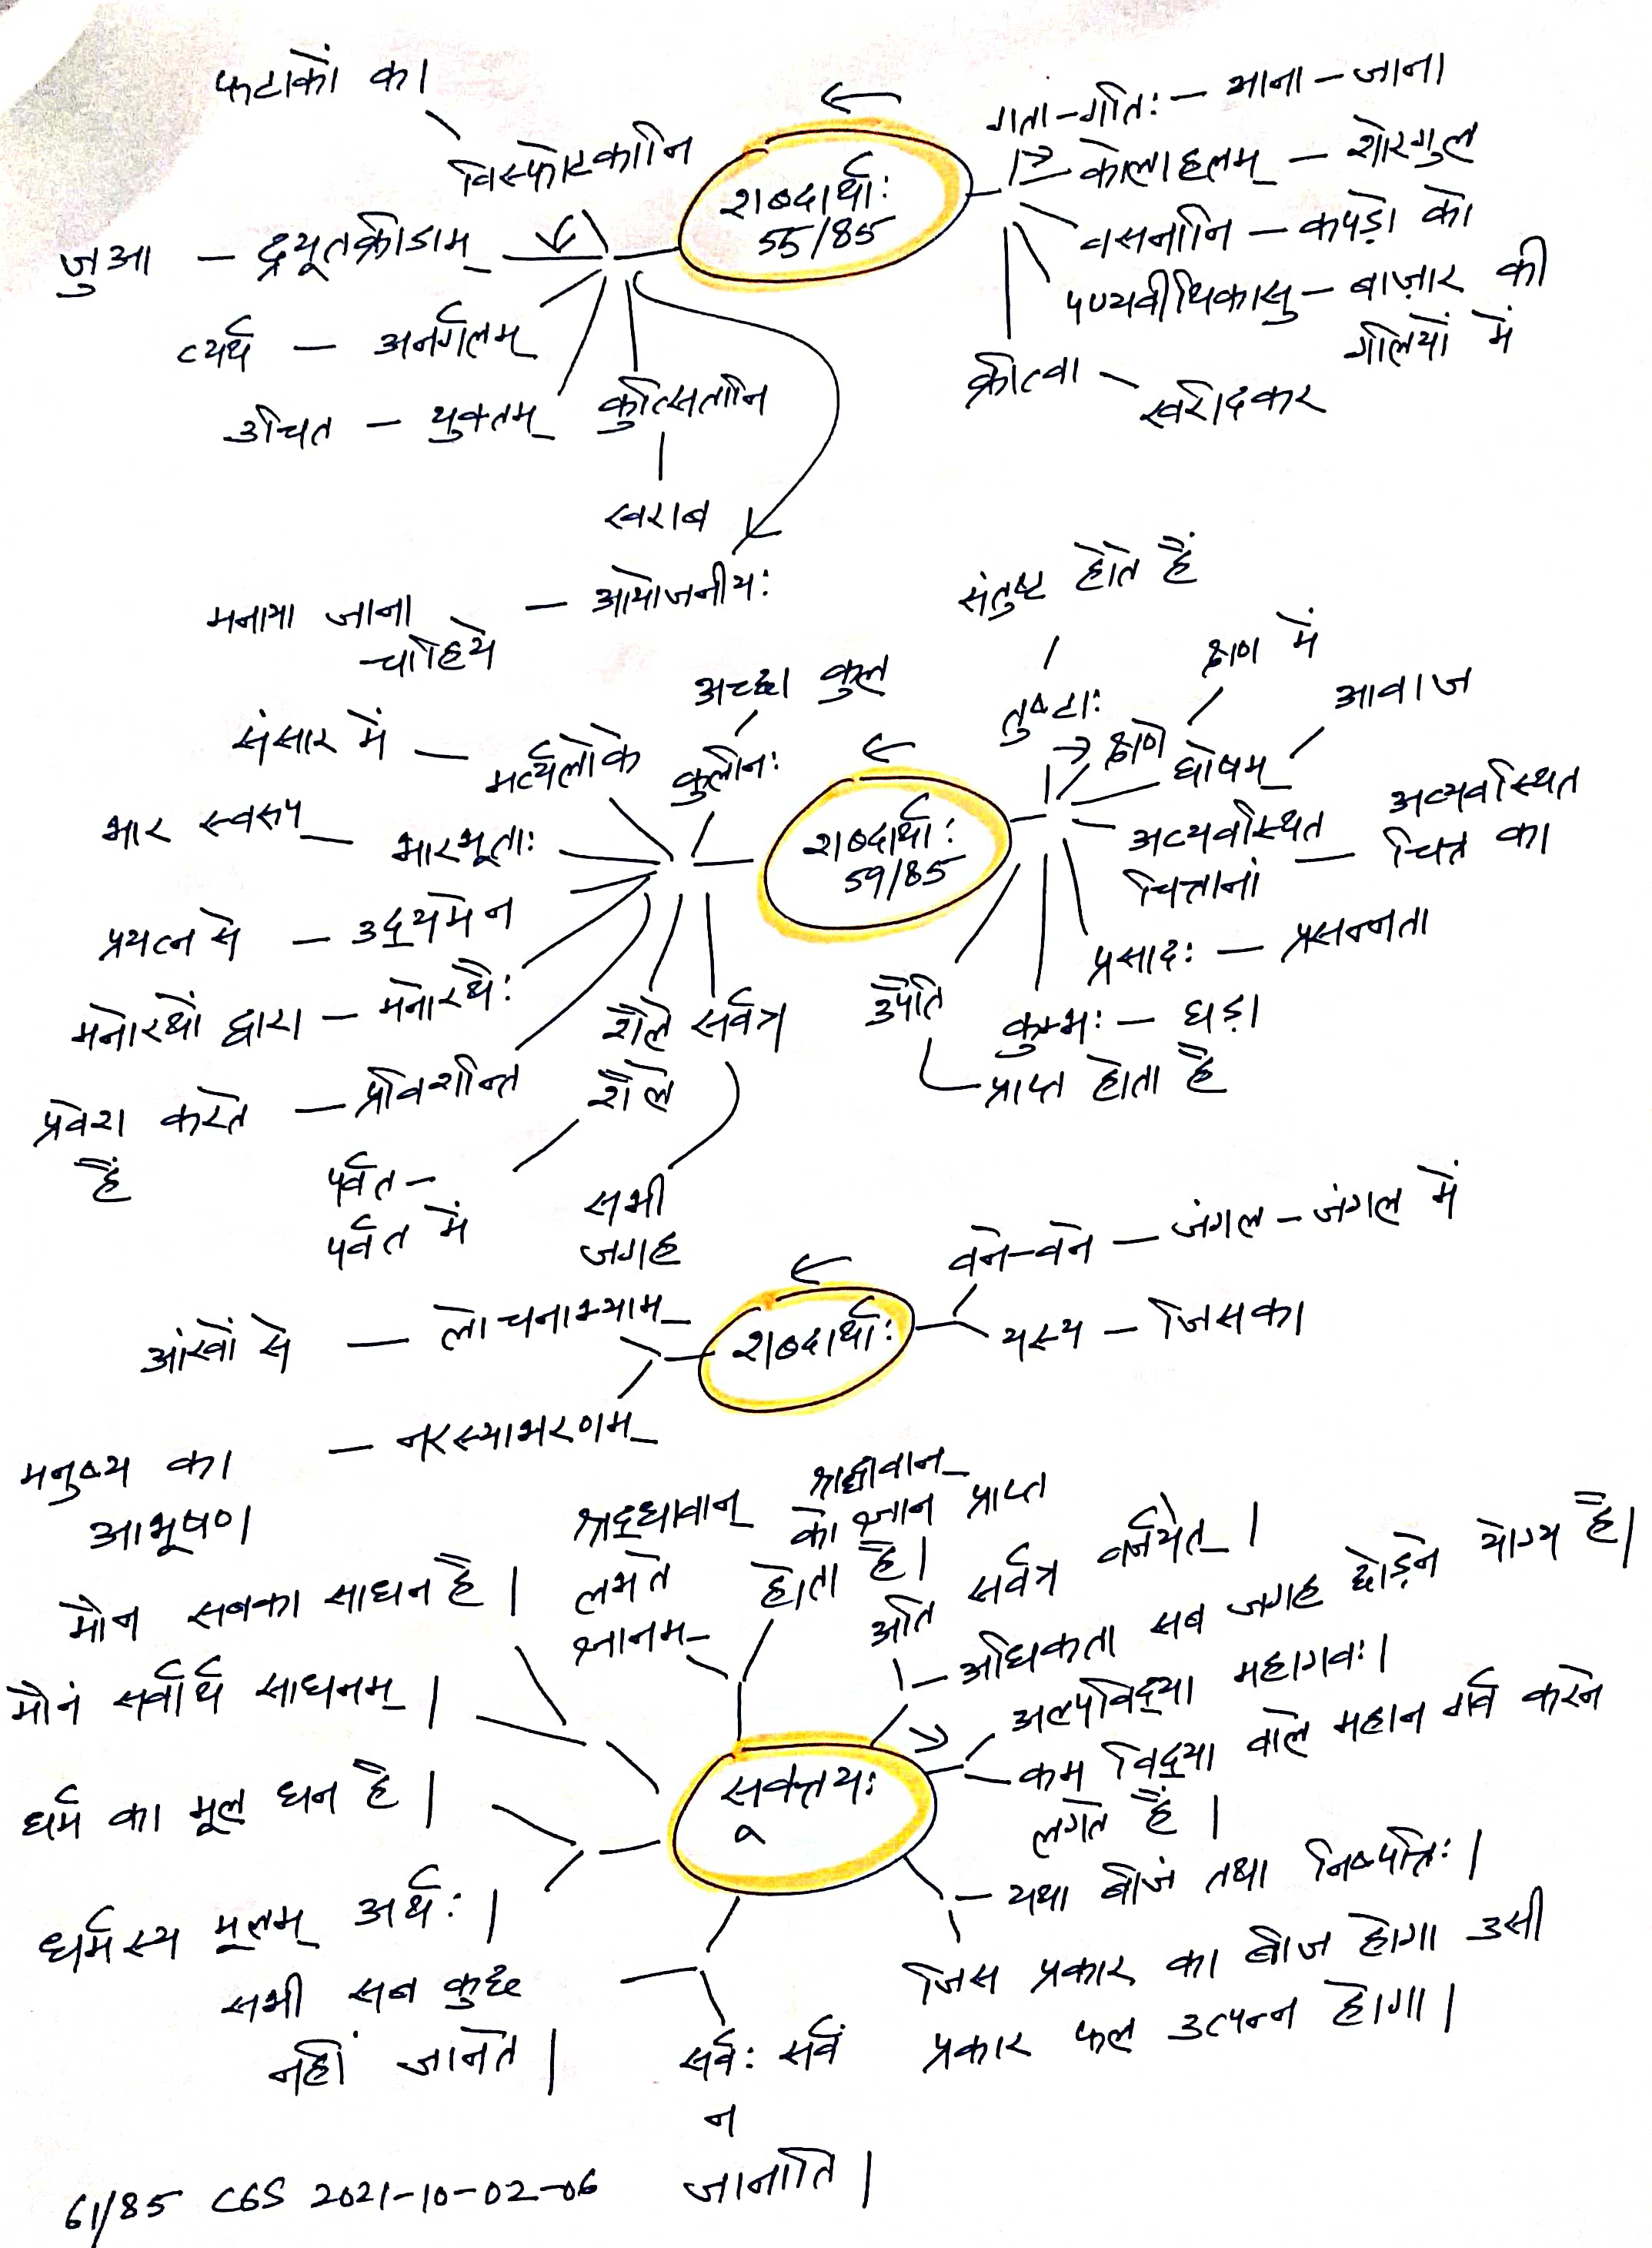 फटाकों का
विस्फोटकानि
जुआ — द्यूतक्रीडाम्
व्यर्थ — अनर्गलम्
उचित — युक्तम्
कुत्सितानि
खराब
मनाया जाना — आयोजनीयः
चाहिये
शब्दार्थाः
55/85
गता-गतिः — आना - जाना
कोलाहलम् — शोरगुल
वसनानि — कपड़ो को
पण्यवीथिकासु — बाज़ार की
गलियों में
क्रीत्वा — खरीदकर
संतुष्ट होते हैं
तुष्टाः
क्षण में
क्षणे
आवाज
घोषम्
अव्यवस्थित
चित्तानां — अव्यवस्थित
चित्त का
प्रसादः — प्रसन्नता
कुम्भः — घड़ा
उपैति
प्राप्त होता है
शब्दार्थाः
59/85
अच्छा कुल
कुलीनः
संसार में — मर्त्यलोके
भार स्वरूप — भारभूताः
प्रयत्न से — उद्यमेन
मनोरथों द्वारा — मनोरथैः
प्रवेश करते — प्रविशन्ति
हैं
शैले
शैले
पर्वत-
पर्वत में
सर्वत्र
सभी
जगह
शब्दार्थाः
वने-वने — जंगल - जंगल में
यस्य — जिसका
आंखों से — लोचनाभ्याम्
मनुष्य का — नरस्याभरणम्
आभूषण
श्रद्धावान्
लभते
ज्ञानम्
श्रद्धावान्
को ज्ञान प्राप्त
होता है।
मौन सबका साधन है।
मौनं सर्वार्थ साधनम्।
धर्म का मूल धन है।
धर्मस्य मूलम् अर्थः।
सूक्तयः
अति सर्वत्र वर्जयेत्।
अधिकता सब जगह छोड़ने योग्य है।
अल्पविद्या महागवः।
कम विद्या वाले महान गर्व करने
लगते हैं।
यथा बीजं तथा निष्पत्तिः।
जिस प्रकार का बीज होगा उसी
प्रकार फल उत्पन्न होगा।
सभी सब कुछ
नहीं जानते।
सर्वः सर्वं
न
जानाति।
61/85 CGS 2021-10-02-06